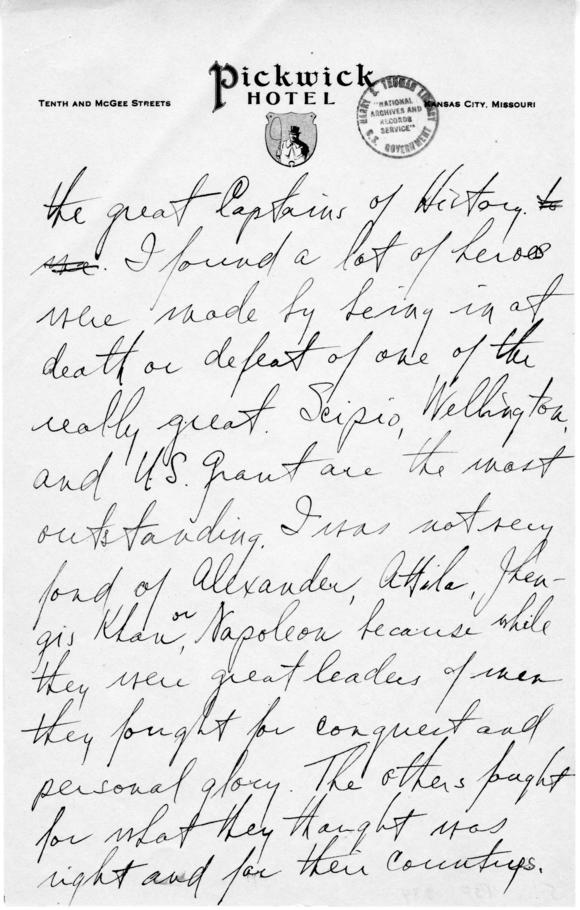 Pickwick
HOTEL
TENTH AND MCGEE STREETS
KANSAS CITY, MISSOURI
HARRY S. TRUMAN LIBRARY
"NATIONAL
ARCHIVES AND
RECORDS
SERVICE"
U.S. GOVERNMENT
the great Captains of History. to
. I found a lot of heroes
were made by being in at
death or defeat of one of the
really great. Scipio, Wellington,
and U.S. Grant are the most
outstanding. I was not very
fond of Alexander, Attila, Jhen-
gis Khan, or Napoleon because while
they were great leaders of men
they fought for conquest and
personal glory. The others fought
for what they thought was
right and for their countrys.